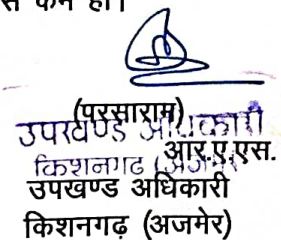 से कम हो।
(परसाराम)
उपखण्ड अधिकारी
आर.ए.एस.
किशनगढ़ (अजमेर)
उपखण्ड अधिकारी
किशनगढ़ (अजमेर)